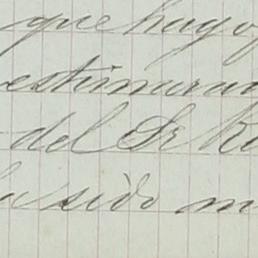 que hago
estimara
del Sr R
ha sido m